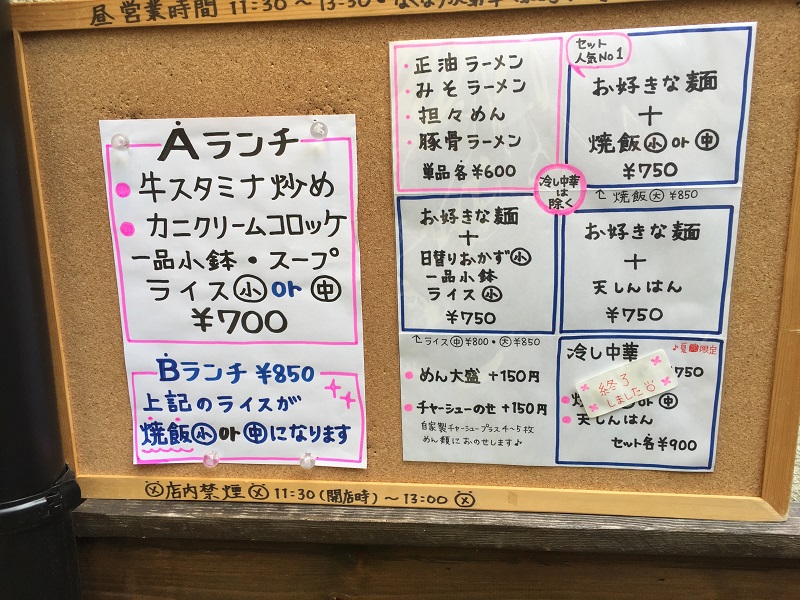 昼営業時間 11:30～13:30
Aランチ
・牛スタミナ炒め
・カニクリームコロッケ
一品小鉢・スープ
ライス小or中
¥700
Bランチ ¥850
上記のライスが
焼飯小or中になります
・正油ラーメン
・みそラーメン
・担々めん
・豚骨ラーメン
単品各¥600
セット
人気No1
お好きな麺
+
焼飯小or中
¥750
冷し中華
は
除く
↑焼飯大¥850
お好きな麺
+
日替りおかず小
一品小鉢
ライス小
¥750
↑ライス中¥800・大¥850
お好きな麺
+
天しんはん
¥750
・めん大盛 +150円
・チャーシューのせ +150円
自家製チャーシュープラス4～5枚
めん類におのせします♪
冷し中華
♪夏限定
750
終了
しました
or中
・天しんはん
セット各¥900
店内禁煙 11:30(開店時)～13:00